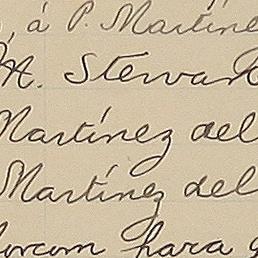 á P. Martíne
M. Stewar
Martínez del
Martínez del
para